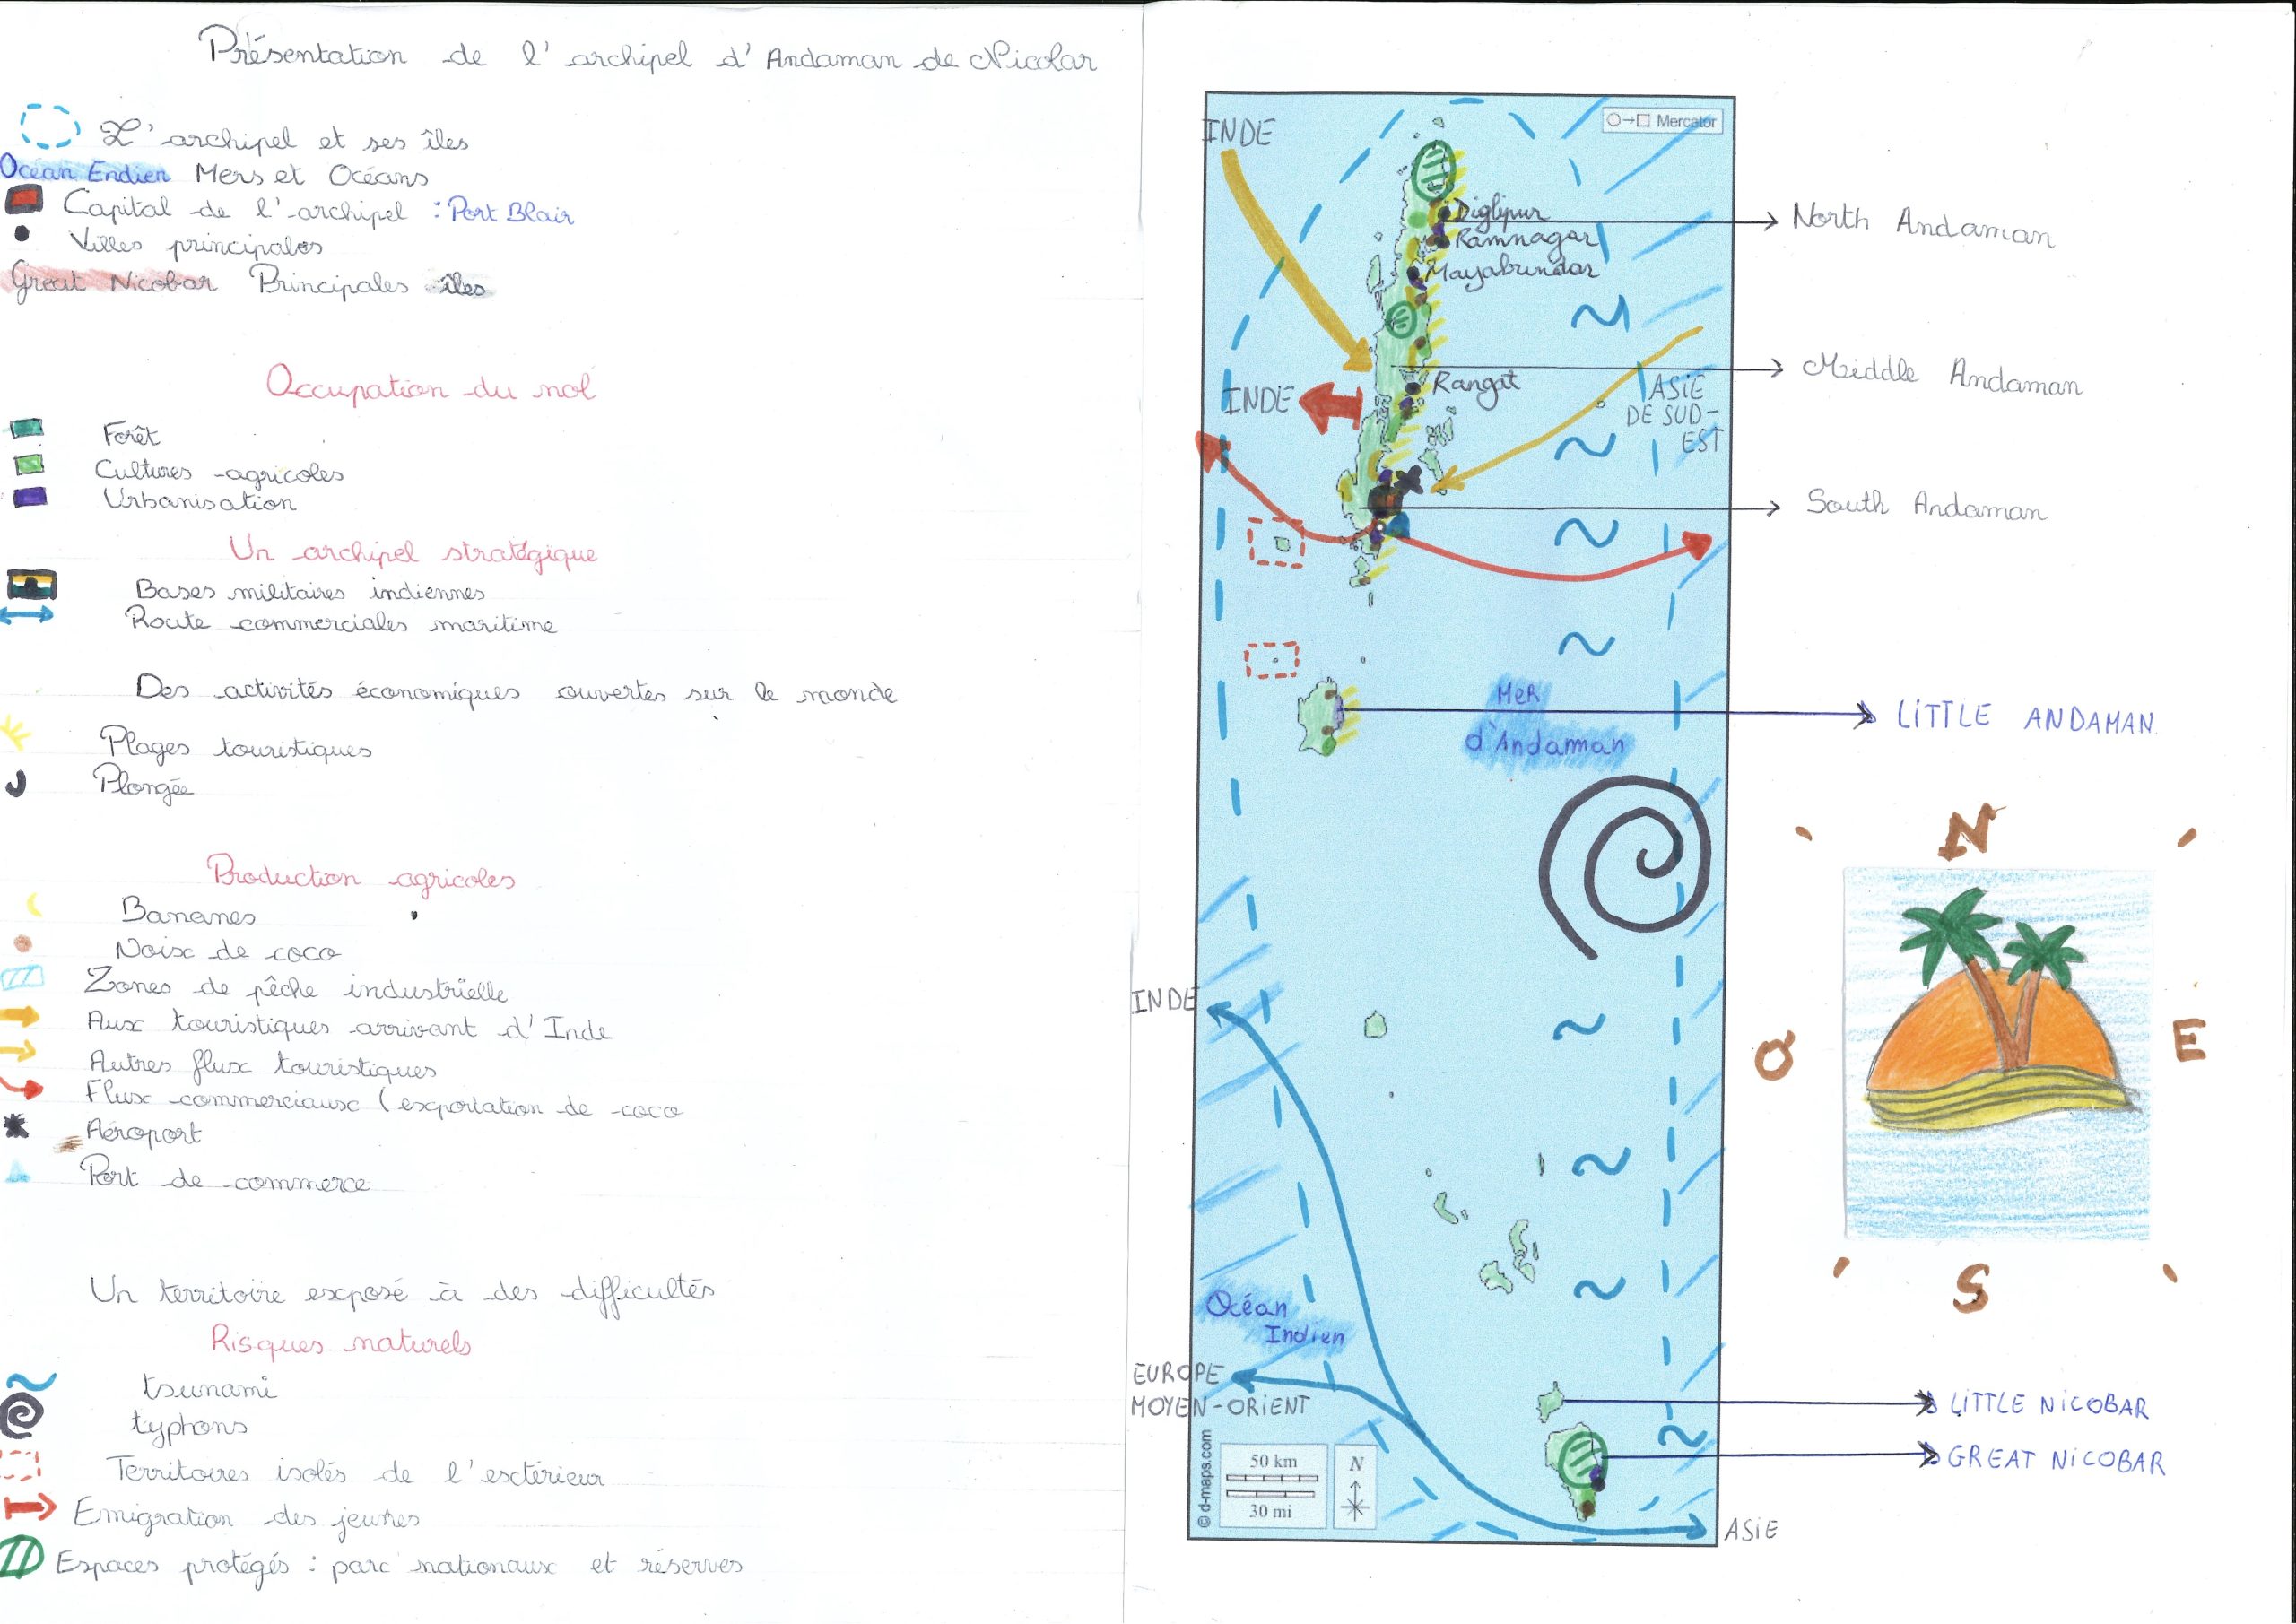 Présentation de l'archipel d'Andaman de Nicobar
L'archipel et ses îles
Océan Endien Mers et Océans
Capital de l'archipel : Port Blair
Villes principales
Great Nicobar Principales îles
Occupation du sol
Forêt
Cultures agricoles
Urbanisation
Un archipel stratégique
Bases militaires indiennes
Route commerciales maritime
Des activités économiques ouvertes sur le monde
Plages touristiques
Plongée
Production agricoles
Bananes
Noix de coco
Zones de pêche industrielle
Aux touristiques arrivant d'Inde
Autres flux touristiques
Flux commerciaux (exportation de coco
Aéroport
Port de commerce
Un territoire exposé à des difficultés
Risques naturels
tsunami
typhons
Territoires isolés de l'extérieur
Emigration des jeunes
Espaces protégés : parc nationaux et réserves
INDE
Mercator
Diglipur
Ramnagar
Mayabundar
North Andaman
Middle Andaman
INDE
Rangat
ASIE
DE SUD-
EST
South Andaman
MER
d'Andaman
LITTLE ANDAMAN
N
O
E
S
INDE
Océan
Indien
EUROPE
MOYEN-ORIENT
LITTLE NICOBAR
GREAT NICOBAR
© d-maps.com
50 km
30 mi
N
ASIE